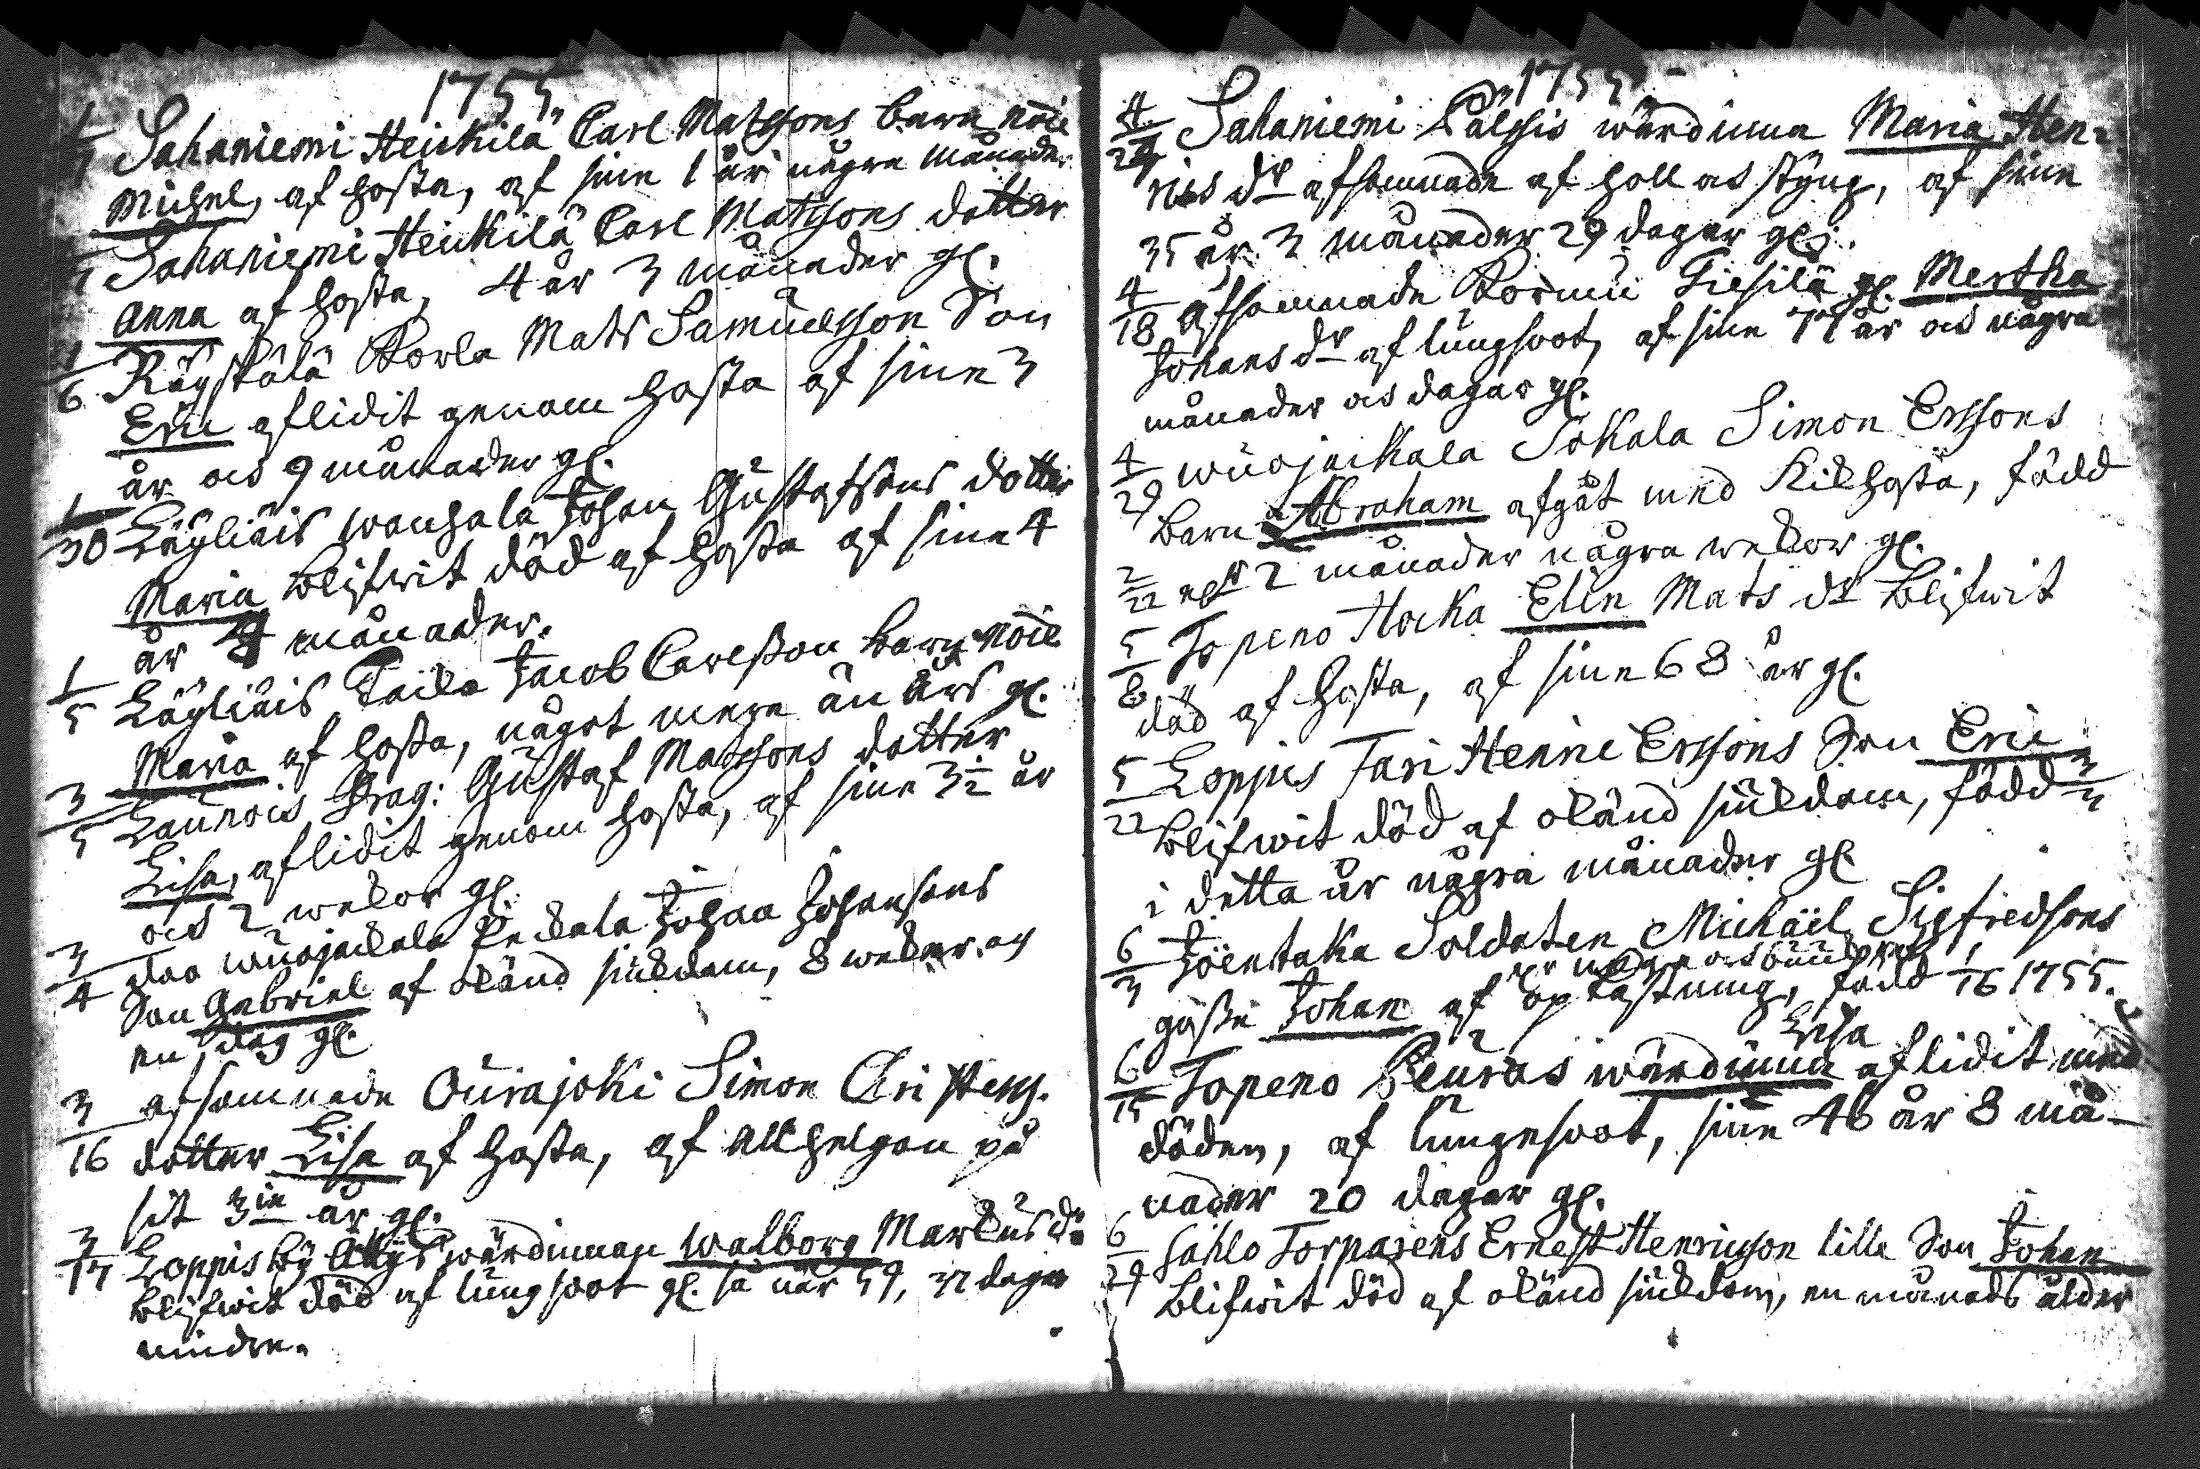 1755
1/1 Sahaniemi Heickilä Carl Matssons barn
Michel, af hosta, af sine 1 år några månader
1/1 Sahaniemi Heickilä Carl Matssons dotter
Anna af hosta, 4 år 3 månader gl.
1/6 Räyskälä Korla Mats Samuelsson Son
Eric aflidit genom hosta af sine 3
år och 9 månader gl.
1/30 Läyliäis wanhala Johan Gustafsons dotter
Maria blifwit död af hosta af sine 4
år månader.
1/5 Läyliäis Taila Jacob Carlsson barn
Maria af hosta, något mera än års gl.
3/5 Launois Gustaf Matssons dotter
Lisa, aflidit genom hosta, af sine 3½ år
och 2 wekor gl.
3/4 doo Wuojackala Peckala Johan Johansons
Son Gabriel af okänd siukdom, 8 wekor och
en dag gl.
3/16 afsomnade Ourajoki Simon Christers.
dotter Lisa af hosta, af allhelgon på
sit 3ie år gl.
3/17 Loppis by wärdinnan Walborg Markus dr
blifwit död af lungsoot gl. så när 59, 32 dagar
mindre.
1755
4/29 Sahaniemi Pälssis wärdinna Maria Hen-
rics dr afsomnade af holl och styng, af sine
35 år 3 månader 29 dagar gl.
4/18 afsomnade Kormu Tiesilä gl. Mertha
Johans dr af lungsoot, af sine 77 år och några
månader och dagar gl.
4/29 Wuojackala Sokala Simon Erssons
barn Abraham afgåt med Kikhosta, född
2/22 2 månader några wekor gl.
5/8 Topeno Hocka Elin Mats dr blifwit
död af hosta, af sine 68 år gl.
5/22 Loppis Tari Henric Erssons Son Eric
blifwit död af okänd siukdom, född 3/11
i detta år några månader gl.
6/3 Joentaka Soldaten Michäel Sigfredsons
gosse Johan af opkastning, född 1/16 1755.
Lisa
6/15 Topeno Peuras wärdinna aflidit med
döden, af lungesoot, sine 46 år 8 må-
nader 20 dagar gl.
6/29 Sahlo Torparens Ernest Henricsson lille Son Johan
blifwit död af okänd siukdom, en månads ålder